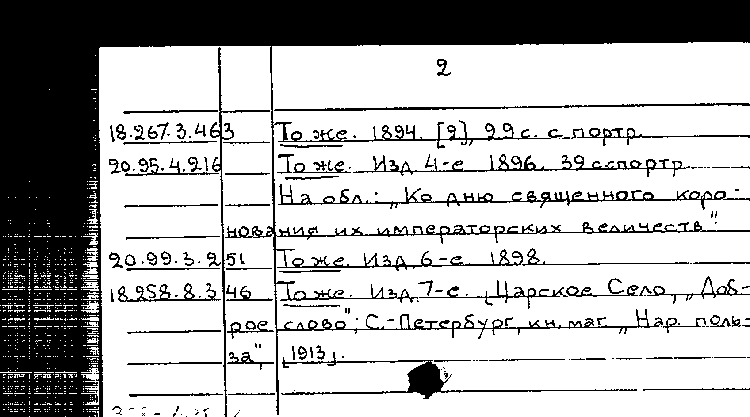 2
18.267.3.463 То же. 1894. [2], 29 с. с портр.
20.95.4.216 То же. Изд. 4-е 1896. 39 с. с портр.
На обл.: „Ко дню священного коро-
нования их императорских величеств".
20.99.3.251 То же. Изд. 6-е. 1898.
18.258.8.346 То же. Изд. 7-е. [Царское Село, „Доб-
рое слово"; С.-Петербург, кн. маг. „Нар. поль-
за", [1913].